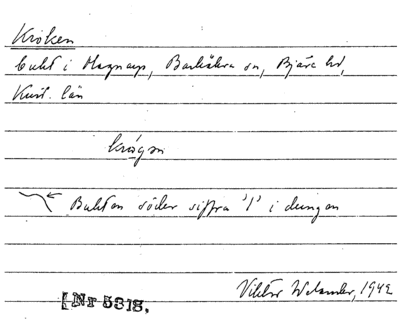 Kroken
bukt i Magnarp, Barkåkra sn, Bjäre hd,
Krist. län
krógen
Bukten söder siffra '1' i dungen
Viktor Welander, 1942
[Nr 5318,